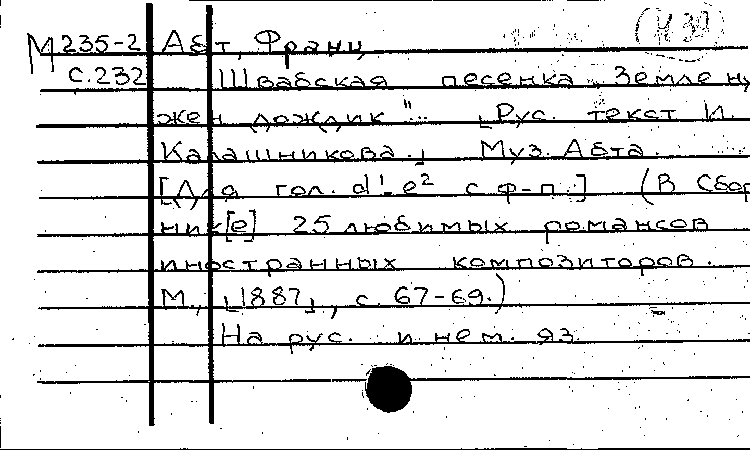 (Н 39)
М 235-2 Абт, Франц
с. 232 Швабская песенка „Земле ну
жен дождик"... [Рус. текст И.
Калашникова.] Муз. Абта.
[Для гол. d¹-e² с ф-п.] (В Сбор
ник[е] 25 любимых романсов
иностранных композиторов.
М., [1887], с. 67-69.)
На рус. и нем. яз.